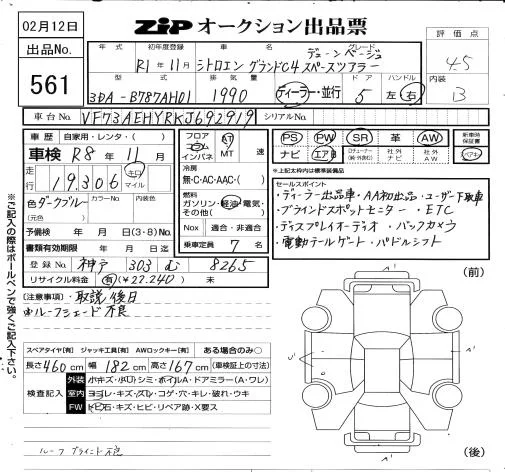 02月12日
ZIP オークション出品票
出品No. 561
年式 初年度登録 車名 グレード 評価点
R1年11月 シトロエン グランドC4 スペースツアラー デューンベージュ
4.5
型式 排気量 ドア ハンドル 内装
3DA-B787AH01 1990 ディーラー・並行 5 左 右 B
車台No. VF73AEHYRKJ692919 シリアルNo.
車歴 自家用・レンタ・( )
車検 R8年11月
走行 19,306 キロ マイル
色 ダークブルー カラーNo. 内装色
(元色)
予備検 年 月 日(3・8)No.
書類有効期限 年 月 日迄
登録No. 神戸 303 む 8265
リサイクル料金 有(¥22,240) 未
フロア コラム インパネ AT MT 速
冷房 無・C・AC・AAC・( )
燃料 ガソリン・軽油・電気・その他( )
Nox 適合・非適合
乗車定員 7名
PS PW SR 革 AW 新車時保証書
ナビ エアB 社外ナビ 社外AW
*上記枠内は標準装備
セールスポイント
・ディーラー出品車・AA初出品・ユーザー下取車
・ブラインドスポットモニター・ETC
・ディスプレイオーディオ・バックカメラ
・電動テールゲート・パドルシフト
(注意事項) 取説後日
ルーフシェード不良
(前)
スペアタイヤ[有] ジャッキ工具[有] AWロックキー[有] ある場合のみ○
長さ460cm 幅182cm 高さ167cm (車検証上の寸法)
検査記入
外装
室内 ヨゴレ・キズ・スレ・コゲ・穴・キレ・破れ・ウキ
FW トビ石・キズ・ヒビ・リペア跡・X要ス
ルーフブラインド不良
(後)
※ご記入の際はボールペンで強くご記入下さい。